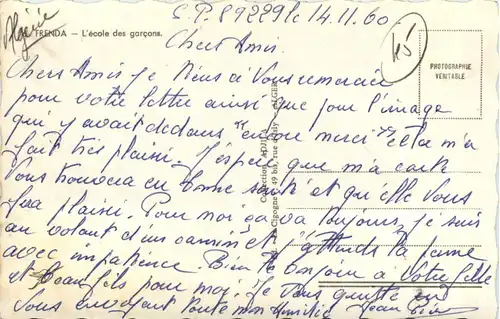 Algérie
FRENDA — L'école des garçons.
S.P. 89229 le 14.11.60
45
PHOTOGRAPHIE
VÉRITABLE
Chers Amis.
Chers Amis je tiens à vous remercier
pour votre lettre ainsi que pour l'image
qui y avait dedans "encore merci" cela m'a
fait très plaisir. J'espère que ma carte
vous trouvera en bonne santé et qu'elle vous
fera plaisir. Pour moi ça va toujours, je suis
au volant d'un camion et j'attends la
avec impatience. Bien le bonjour à votre fille
et beau fils pour moi. Je vous quitte en
vous envoyant toute mon amitié Jean
Collection
49 bis, rue
ALGER